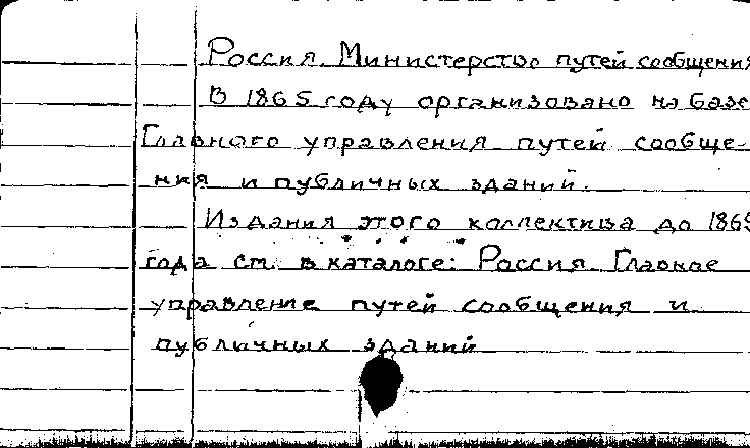 Россия. Министерство путей сообщения
В 1865 году организовано на базе
Главного управления путей сообще-
ния и публичных зданий.
Издания этого коллектива до 1865
года см. в каталоге: Россия. Главное
управление путей сообщения и
публичных зданий